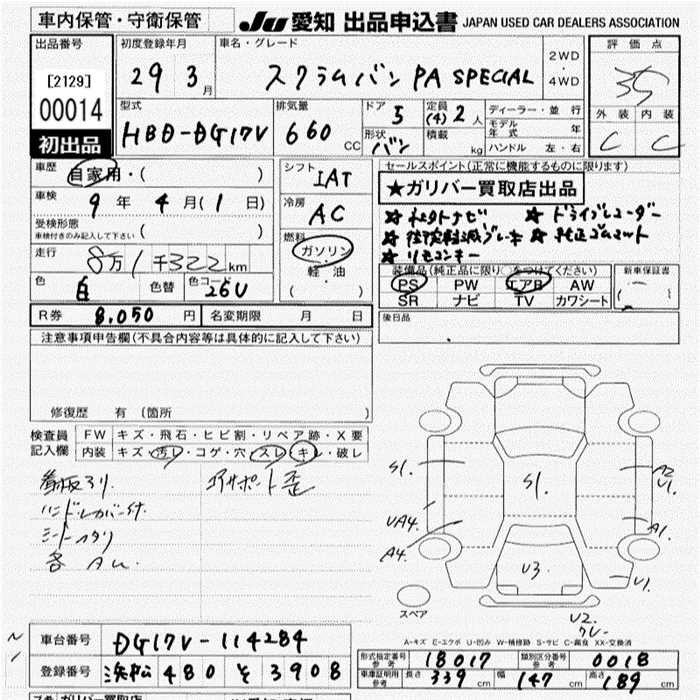 車内保管・守衛保管
JU 愛知 出品申込書 JAPAN USED CAR DEALERS ASSOCIATION
出品番号
[2129]
00014
初出品
初度登録年月
29 3月
車名・グレード
スクラムバン PA SPECIAL
2WD
・
4WD
評価点
3.5
外装 内装
C C
型式
HBD-DG17V
排気量
660 CC
ドア 5
形状 バン
定員 (4) 2 人
積載 kg
ディーラー・並行
モデル年式 年
ハンドル 左・右
車歴
自家用・( )
車検
9年 4月(1日)
受検形態
車検付きのみ記入して下さい ( )
走行
8万1千322km
色 白 色替 色コード 26U
シフト IAT
冷房 AC
燃料
ガソリン
・
軽・油
( )
セールスポイント(正常に機能するものに限ります)
★ガリバー買取店出品
☆ ドライブレコーダー
☆ 純正ゴムマット
☆ リモコンキー
装備品(純正品に限り○をつけてください)
PS PW エアB AW
SR ナビ TV カワシート
新車保証書
( )
R券 8,050円 名変期限 月 日
後日品
注意事項申告欄(不具合内容等は具体的に記入して下さい)
修復歴 有(箇所 )
検査員記入欄
FW キズ・飛石・ヒビ割・リペア跡・X要
内装 キズ・汚レ・コゲ・穴・スレ・キレ・破レ
コアサポート歪
ハンドルカバー付
S1. S1. A2
U1.
UA4
A4.
A1.
U3.
U1.
U2.
スペア
A-キズ E-エクボ U-凹み W-補修跡 S-サビ C-腐食 XX-交換済
車台番号 DG17V-114284
登録番号 浜松 480 そ 3908
形式指定番号 参考 18017 類別区分番号 参考 0018
車庫証明用 参考 長さ 339 cm 幅 147 cm 高さ 189 cm
ガリバー買取店